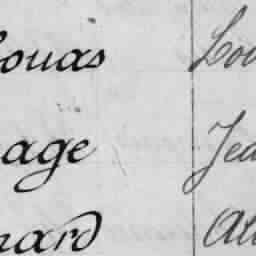 ouas Lou
age Jea
nard Al